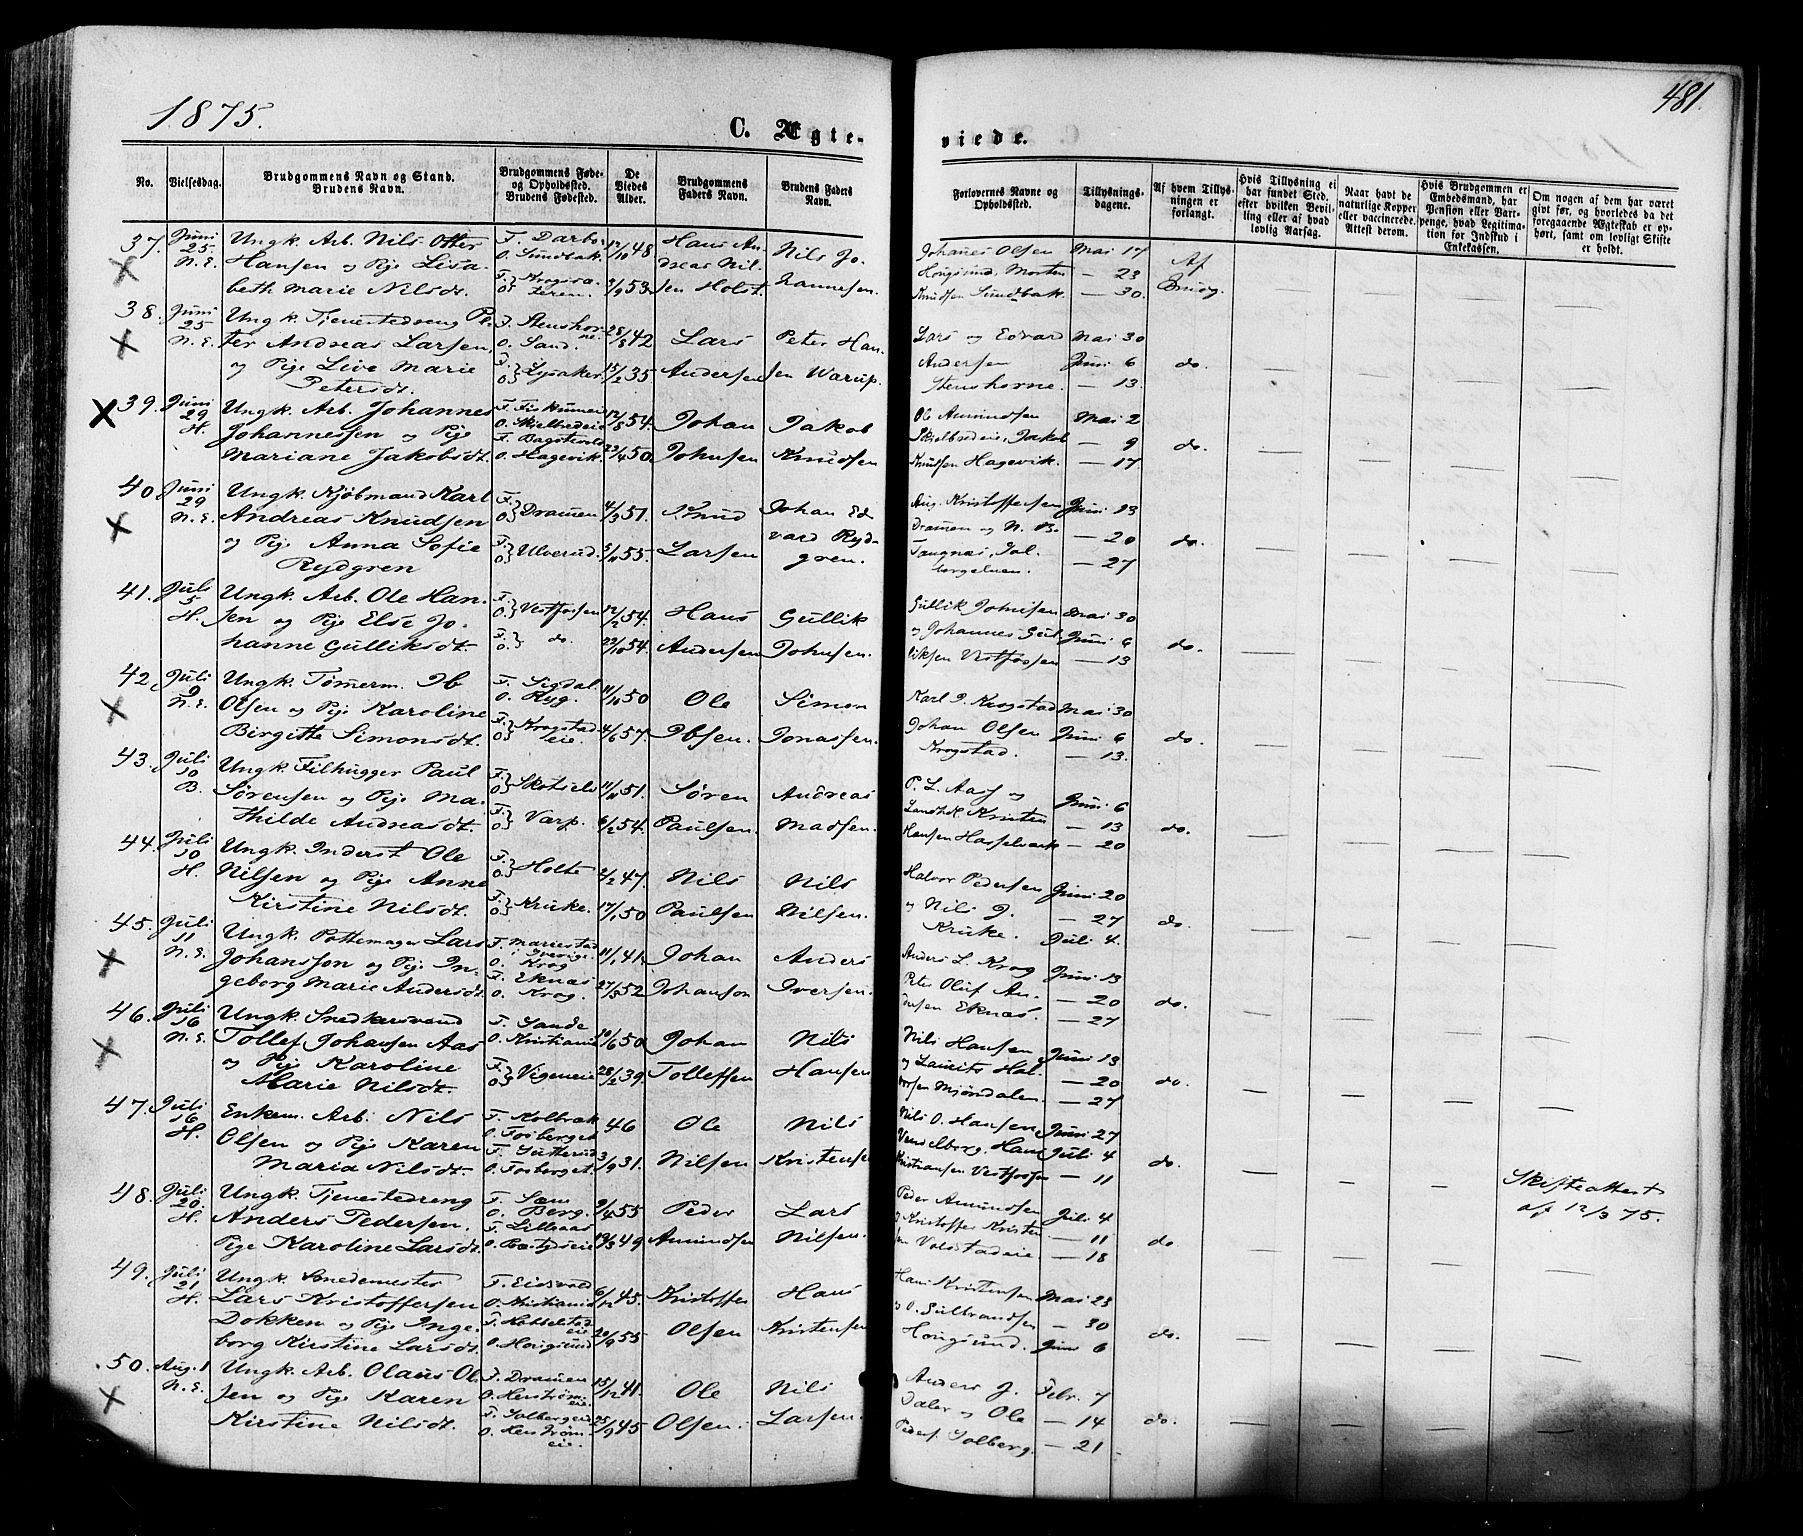 1875.
481.
C. Ægte-
viede.
No.
Vielsesdag.
Brudgommens Navn og Stand.
Brudens Navn.
Brudgommens Føde-
og Opholdssted.
Brudens Fødested.
De
Viedes
Alder.
Brudgommens
Faders Navn.
Brudens Faders
Navn.
Forlovernes Navne og
Opholdssted.
Tillysnings-
dagene.
Af hvem Tillys-
ningen er
forlangt.
Hvis Tillysning ei
har fundet Sted,
efter hvilken Bevil-
ling eller af hvad
lovlig Aarsag.
Naar havt de
naturlige Kopper
eller vaccinerede.
Attest derom.
Hvis Brudgommen er
Embedsmand, har
Pension eller Vart-
penge, hvad Legitima-
tion for Indskud i
Enkekassen.
Om nogen af dem har været
givt før, og hvorledes da det
foregaaende Ægteskab er op-
hørt, samt om lovligt Skifte
er holdt.
37. Juni Ungk. Arb. Nils Otter F. Darbo 17/10 48 Hans An- Nils Jo- Johanes Olsen Mai 17
25 Hansen og Pige Lisa- O. Sundbak dreas Nil- hannesen. Hougsund, Morten — 23 Af
N. E. beth Marie Nilsdt. 9/9 53. sen Holst. Knudsen Sundbak — 30.
38. Juni Ungk. Tjenestedreng Pe- F. Stenshor- 28/8 42 Lars Peter Han- Lars og Edvard Mai 30
25 ter Andreas Larsen, O. Sand. Andersen sen Warup. Andersen Juni 6 do.
N. E. og Pige Live Marie F. O. Lysaker 15/2 35 Stenshorne. — 13.
Petersdt.
39. Juni Ungk. Arb. Johannes 12/8 54. Johan Jakob Ole Amundsen Mai 2
29 Johannessen og Pige O. Skjelbredeie Johnsen Knudsen Skjelbredeie, Jakob — 9 do.
H. Mariane Jakobsdt. O. Hagevik. 23/4 50. Knudsen Hagevik. — 17.
40. Juni Ungk. Kjøbmand Karl F. O. Dramen 4/3 51. Knud Johan Ed- Aug. Kristoffersen Juni 13
29 Andreas Knudsen Larsen vard Ryd- Dramen og N. B. — 20 do.
N. E. og Pige Anna Sofie F. O. Ulverud. 5/11 55. gren. Tangnæs, Sol- — 27
Rydgren bergelven.
41. Juli Ungk. Arb. Ole Han- F. O. Vestfossen 12/2 54. Hans Gullik Gullik Johnsen Mai 30
5 sen og Pige Else Jo- F. O. do. 23/10 54. Andersen Johnsen. og Johannes Gul- Juni 6 do.
H. hanne Gulliksdt. liksen Vestfossen — 13
42. Juli Ungk. Tømerm. Ib F. Sigdal 11/10 50 Ole Simon Karl J. Krogstad Mai 30
9 Olsen og Pige Karoline O. Ryg. Johan Olsen Juni 6 do.
N. E. Birgitte Simonsdt. F. O. Krogstad- eie 4/6 57. Ibsen. Jonassen. Krogstad. — 13.
43. Juli Ungk. Filhugger Paul F. O. Skotselv 11/11 51. Søren Andreas P. L. Aas og Juni 6
10 Sørensen og Pige Ma- Kristen — 13 do.
B. thilde Andreasdt. F. O. Varp. 6/2 54. Paulsen. Madsen. Hansen Hasselvark — 20
44. Juli Ungk. Inderst Ole F. O. Holte 2/2 47. Nils Nils Halvor Pedersen Juni 20
10 Nilsen og Pige Anne og Nils J. — 27 do.
H. Kirstine Nilsdt. F. O. Kruke. 17/1 50 Paulsen Nilsen. Kruke. Juli 4.
45. Juli Ungk. Pottemager Lars F. Mariestad i Sverige 11/1 41. Johan Anders Anders L. Krog Juni 13
11 Johansson og Pige In- O. Krog Peter Oluf An- — 20 do.
N. E. geborg Marie Andersdt. F. Eknæs O. Krog. 27/3 52 Johanson Iversen. dersen Eknæs. — 27
46. Juli Ungk. Snedkersvend F. Sande 10/6 50 Johan Nils Nils Hansen Juni 13
16 Tollef Johansen Aas O. Kristiania og Laurits Hal- — 20 do.
N. E. og Pige Karoline F. O. Vigeneie 28/2 39 Tollefsen Hansen vorsen Mjøndalen. — 27
Marie Nilsdt.
47. Juli Enkem. Arb. Nils F. Kolbræk 46 Ole Nils Nils O. Hansen Juni 27
16 Olsen og Pige Karen O. Fosberget Vendelborg, Hans Juli 4 do.
H. Maria Nilsdt. O. Fosberget. 3/9 31. Nilsen Kristensen Kristiansen Vestfossen — 11
Skifteattest
af 12/3 75.
48. Juli Ungk. Tjenestedreng F. Sem 9/4 55 Peder Lars Peder Amundsen Juli 4
20. Anders Pedersen. O. Berg. og Kristoffer Kristen- — 11 do.
H. Pige Karoline Larsdt. F. Lilleaas 19/3 49 Amundsen Nilsen. sen Volstadeie — 18
49. Juli Ungk. Smedemester F. Eidsvold 6/12 45. Kristoffer Hans Hans Kristensen Mai 23
21 Lars Kristoffersen O. Kristiania og O. Gulbrandsen — 30 do.
H. Dokken og Pige Inge- Hougsund. Juni 6
borg Kirstine Larsdt. O. Hougsund 20/9 55 Olsen Kristensen
50. Aug. 1 Ungk. Arb. Olaus Ol- F. Dramen 15/12 41. Ole Nils Anders J. Febr. 7
N. E. sen og Pige Karen O. Herstrøm- eie Daler og Ole — 14 do.
Kirstine Nilsdt. F. Solbergeie O. Herstrøm- eie. 25/9 45 Olsen. Larsen. Peders. Solberg. — 21